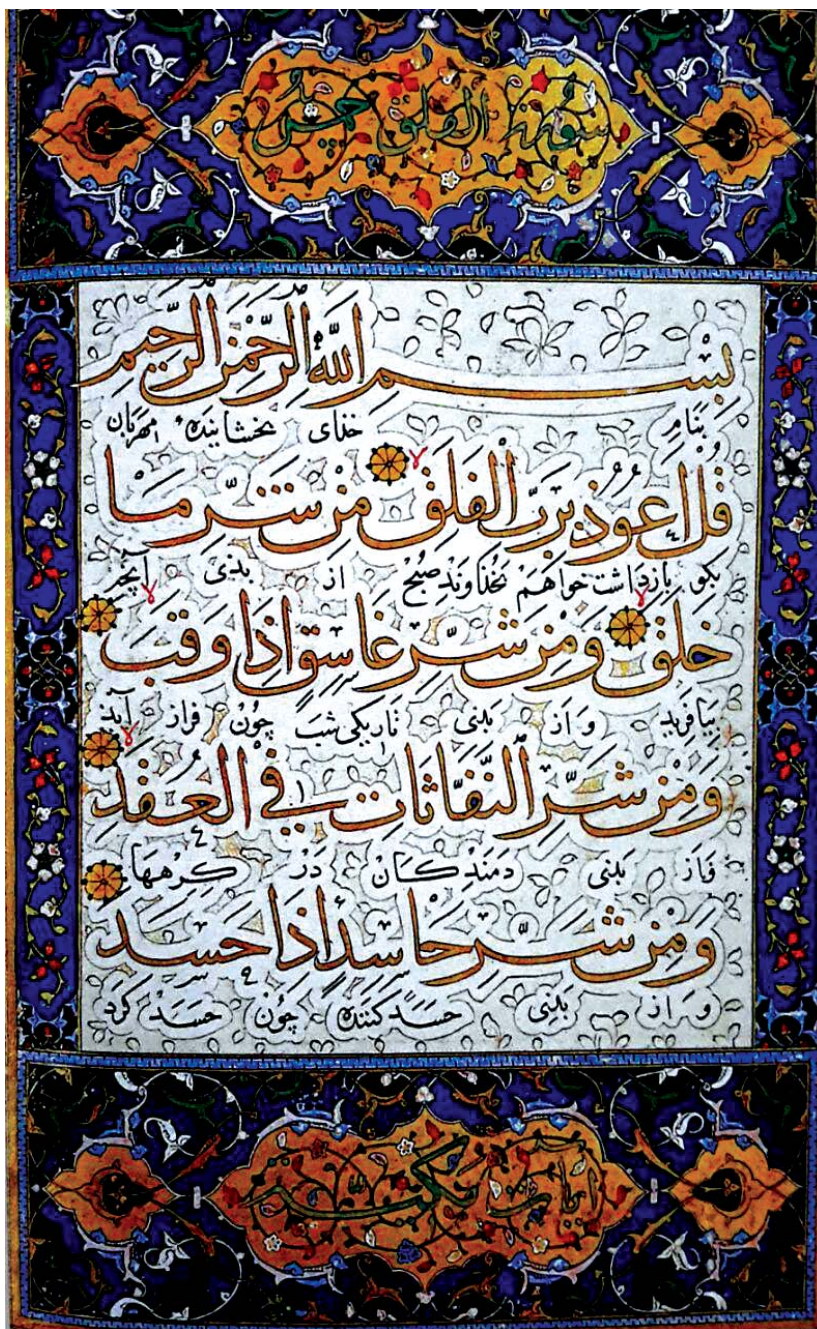 سورة الفلق خمس
بِسْمِ اللّٰهِ الرَّحْمٰنِ الرَّحِيمِ
بنام خذای بخشاینده مهربان
قُلْ اَعُوذُ بِرَبِّ الْفَلَقِ لا مِنْ شَرِّ مَا
بکو بازداشت خواهم بخذاوند صبح از بذی آنچه
خَلَقَ لا وَمِنْ شَرِّ غَاسِقٍ اِذَا وَقَبَ لا
بیافرید و از بذی تاریکی شب چون فراز آید
وَمِنْ شَرِّ النَّفَّاثَاتِ فِي الْعُقَدِ لا
و از بذی دمندکان در کرهها
وَمِنْ شَرِّ حَاسِدٍ اِذَا حَسَدَ
و از بذی حسد کننده چون حسد کرد
آیات مکیة